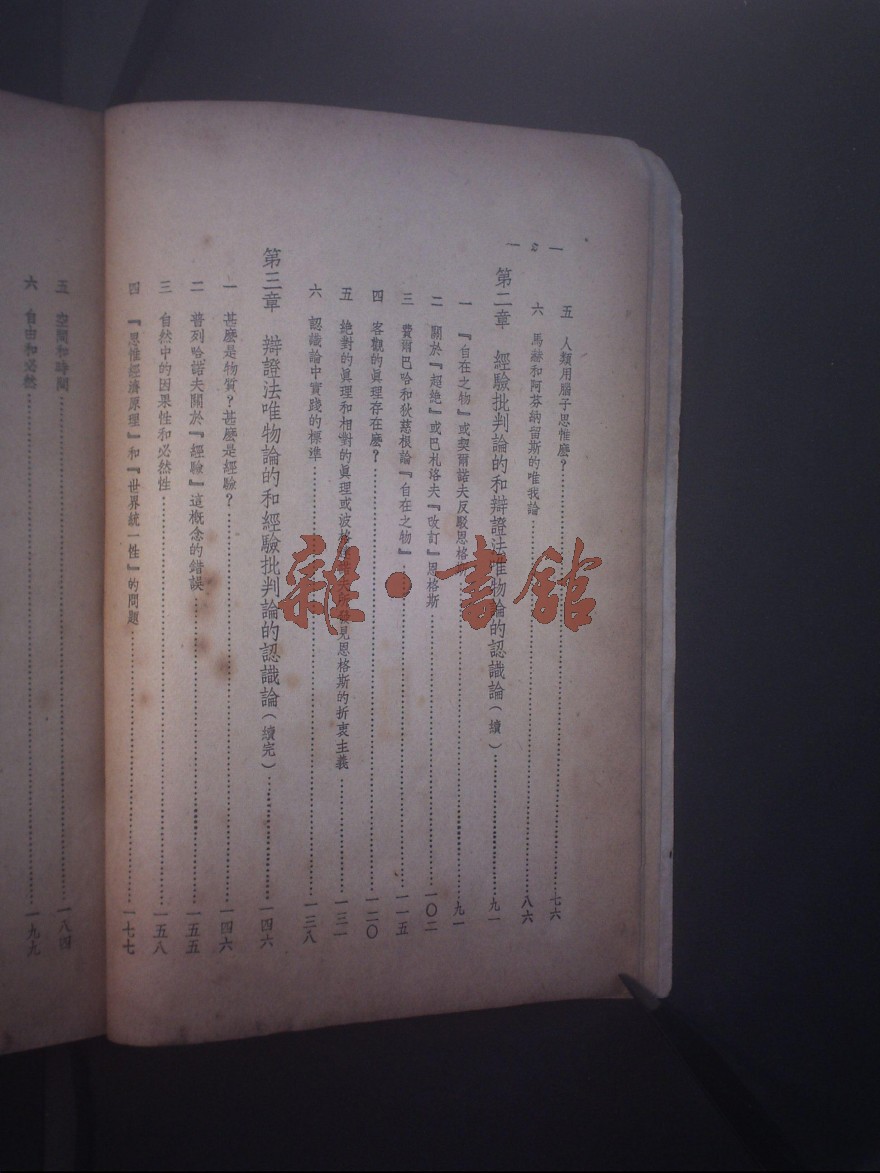 — 2 —
五 人類用腦子思惟麼?……七六
六 馬赫和阿芬納留斯的唯我論……八六
第二章 經驗批判論的和辯證法唯物論的認識論(續)……九一
一 『自在之物』或契爾諾夫反駁恩格……九一
二 關於『超絕』或巴札洛夫『改訂』恩格斯……一〇二
三 費爾巴哈和狄慈根論『自在之物』……一一五
四 客觀的眞理存在麼?……一二〇
五 絶對的眞理和相對的眞理或波格見恩格斯的折衷主義……一三一
六 認識論中實踐的標準……一三八
第三章 辯證法唯物論的和經驗批判論的認識論(續完)……一四六
一 甚麼是物質?甚麼是經驗?……一四六
二 普列哈諾夫關於『經驗』這概念的錯誤……一五五
三 自然中的因果性和必然性……一五八
四 『思惟經濟原理』和『世界統一性』的問題……一七七
五 空間和時間……一八四
六 自由和必然……一九九
雜·書館